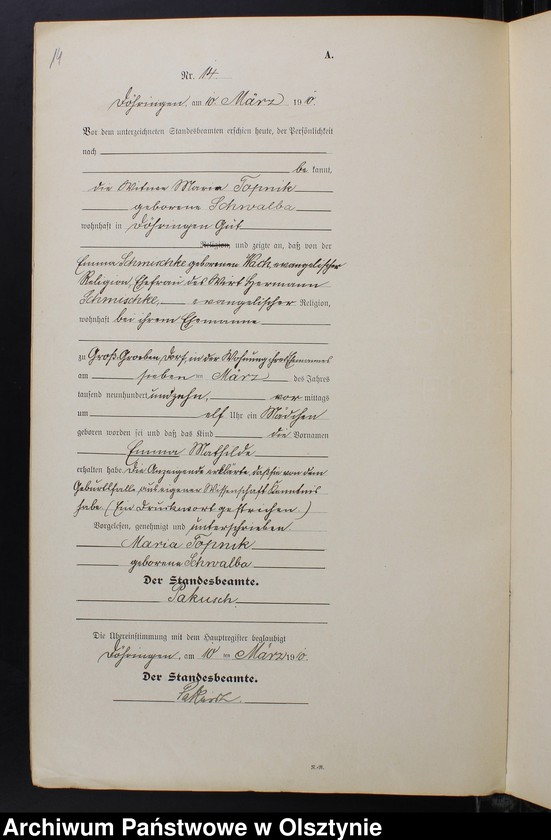 14
A.
Nr. 14.
Döhringen, am 10 März 1910.
Vor dem unterzeichneten Standesbeamten erschien heute, der Persönlichkeit
nach
be kannt,
die Witwe Maria Topnik
geborene Schwalba
wohnhaft in Döhringen Gut
Religion, und zeigte an, daß von der
Emma Schmischke geborenen evangelischer
Religion, Ehefrau des Wirt Hermann
Schmischke, evangelischer Religion,
wohnhaft bei ihrem Ehemanne
zu Groß Groeben, Dorf, in der Wohnung ihres Ehemannes
am sieben ten März des Jahres
tausend neunhundert undzehn, vor mittags
um elf Uhr ein Mädchen
geboren worden sei und daß das Kind die Vornamen
Emma Mathilde
erhalten habe. Die Anzeigende erklärte, daß sie von dem
Geburtsfalle aus eigener Wissenschaft Kenntnis
habe. (Ein Druckwort gestrichen.)
Vorgelesen, genehmigt und unterschrieben
Maria Topnik
geborene Schwalba
Der Standesbeamte.
Pakusch.
Die Übereinstimmung mit dem Hauptregister beglaubigt
Döhringen, am 10 ten März 1910.
Der Standesbeamte.
Pakusch.
Archiwum Państwowe w Olsztynie